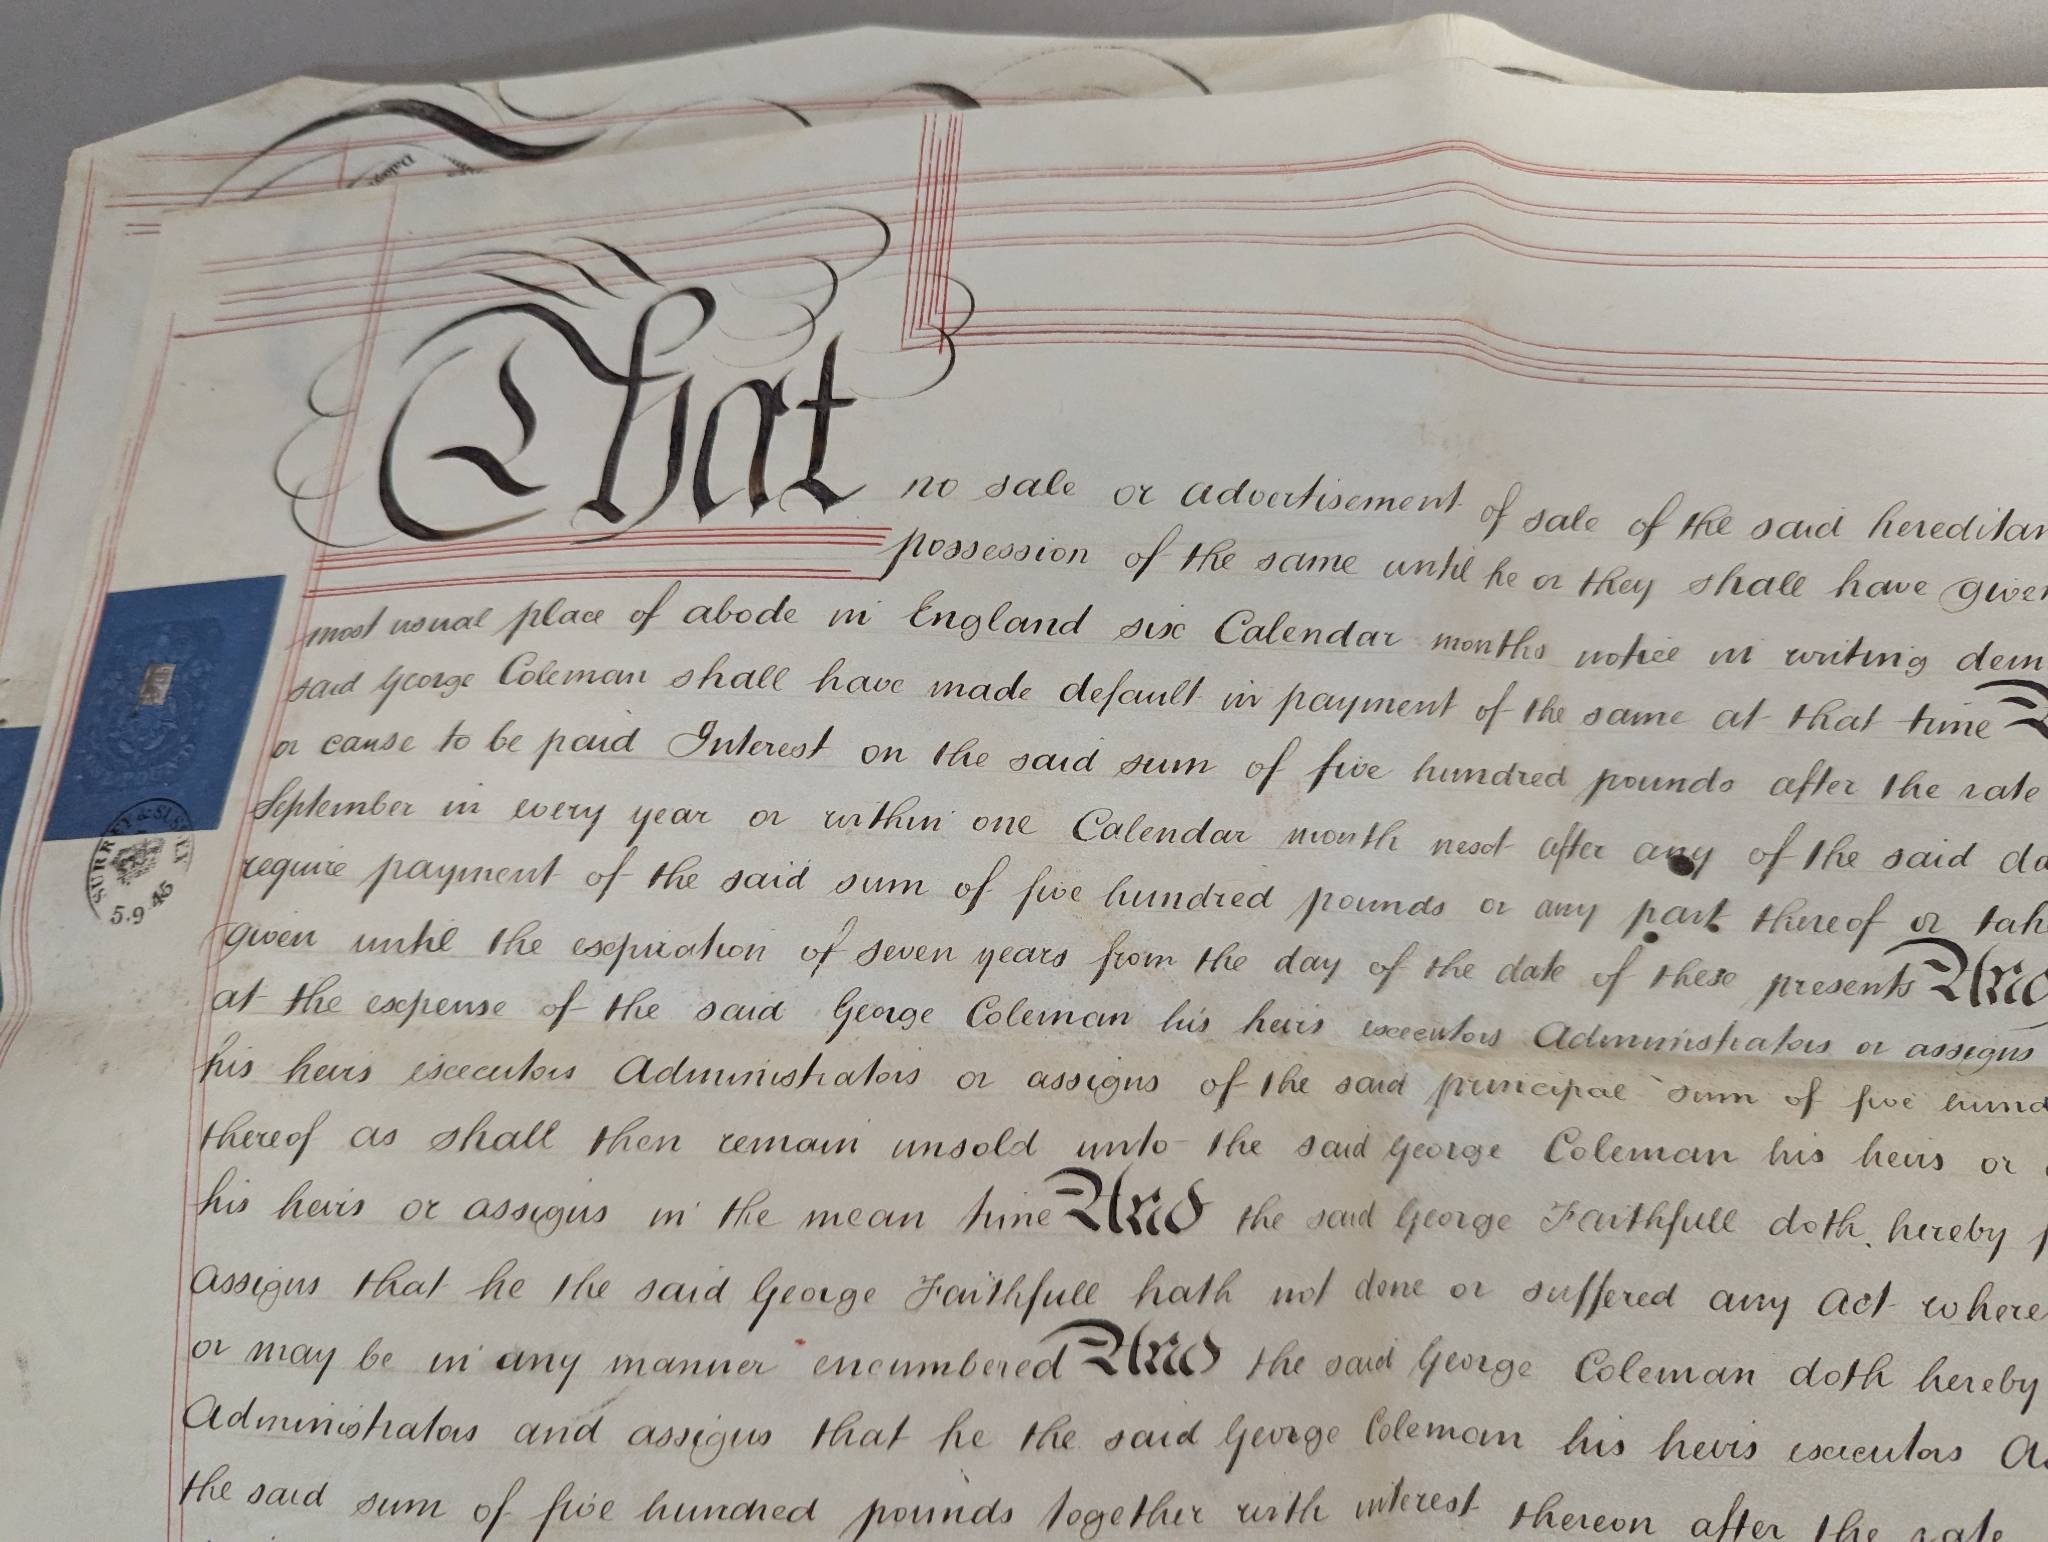 That no sale or advertisement of sale of the said hereditan
possession of the same until he or they shall have given
most usual place of abode in England six Calendar months notice in writing dem
said George Coleman shall have made default in payment of the same at that time
or cause to be paid Interest on the said sum of five hundred pounds after the rate
September in every year or within one Calendar month next after any of the said da
require payment of the said sum of five hundred pounds or any part thereof or tak
given until the expiration of seven years from the day of the date of these presents And
at the expense of the said George Coleman his heirs executors Administrators or assigns
his heirs executors Administrators or assigns of the said principal sum of five hund
thereof as shall then remain unsold unto the said George Coleman his heirs or
his heirs or assigns in the mean time And the said George Faithfull doth hereby
assigns that he the said George Faithfull hath not done or suffered any Act where
or may be in any manner encumbered And the said George Coleman doth hereby
Administrators and assigns that he the said George Coleman his heirs executors A
the said sum of five hundred pounds together with interest thereon after the rate
SURREY & SUSSEX
5.9 45